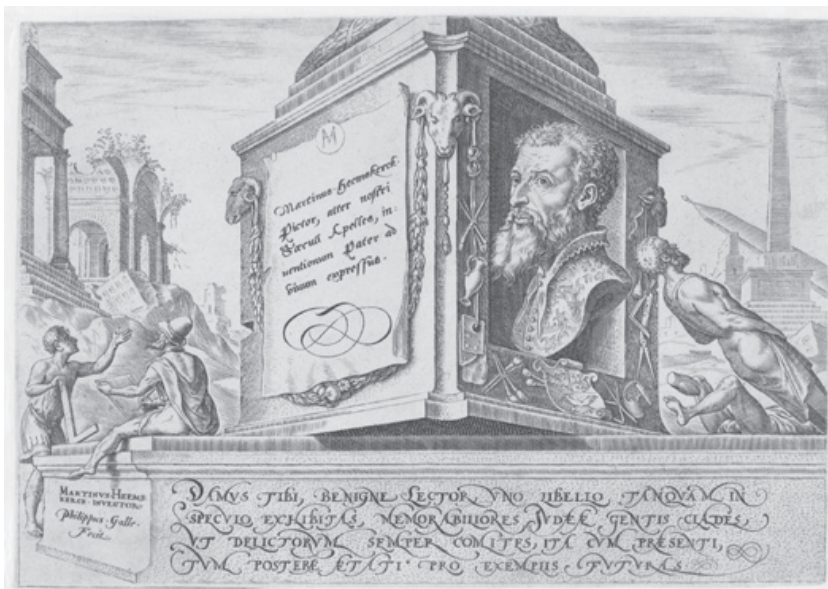 M
Martinus Heemskerck
Pictor, alter nostri
Sæculi Apelles, in-
uentionum Pater ad
viuum expressus.
MARTINVS HEEMS
KERCK INVENTOR
Philippus Galle
Fecit
DAMVS TIBI, BENIGNE LECTOR, VNO LIBELLO, TANQVAM IN
SPECVLO, EXHIBITAS, MEMORABILIORES IVDEÆ GENTIS CLADES,
VT DELICTORVM SEMPER COMITES, ITA CVM PRESENTI,
TVM POSTERE ETATI PRO EXEMPLIS FVTVRAS